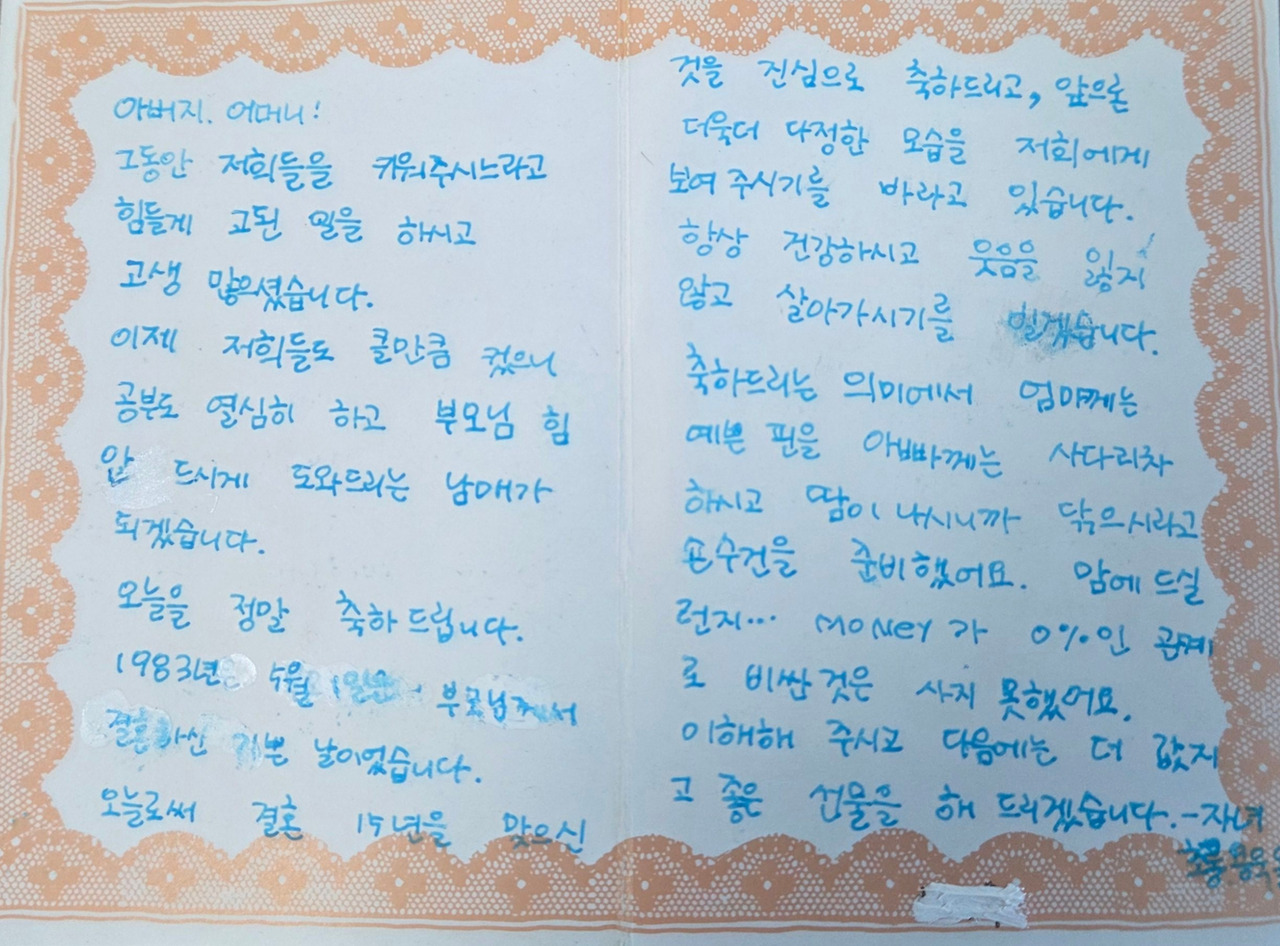 아버지. 어머니!
그동안 저희들을 키워주시느라고
힘들게 고된 일을 하시고
고생 많으셨습니다.
이제 저희들도 클만큼 컸으니
공부도 열심히 하고 부모님 힘
안 드시게 도와드리는 남매가
되겠습니다.
오늘을 정말 축하드립니다.
1983년 5월 1일은 부모님께서
결혼하신 기쁜 날이었습니다.
오늘로써 결혼 15년을 맞으신
것을 진심으로 축하드리고, 앞으론
더욱더 다정한 모습을 저희에게
보여 주시기를 바라고 있습니다.
항상 건강하시고 웃음을 잃지
않고 살아가시기를 빌겠습니다.
축하드리는 의미에서 엄마께는
예쁜 핀을 아빠께는 사다리차
하시고 땀이 나시니까 닦으시라고
손수건을 준비했어요. 맘에 드실
런지... MONEY가 0%인 관계
로 비싼 것은 사지 못했어요.
이해해 주시고 다음에는 더 값지
고 좋은 선물을 해 드리겠습니다.-자녀